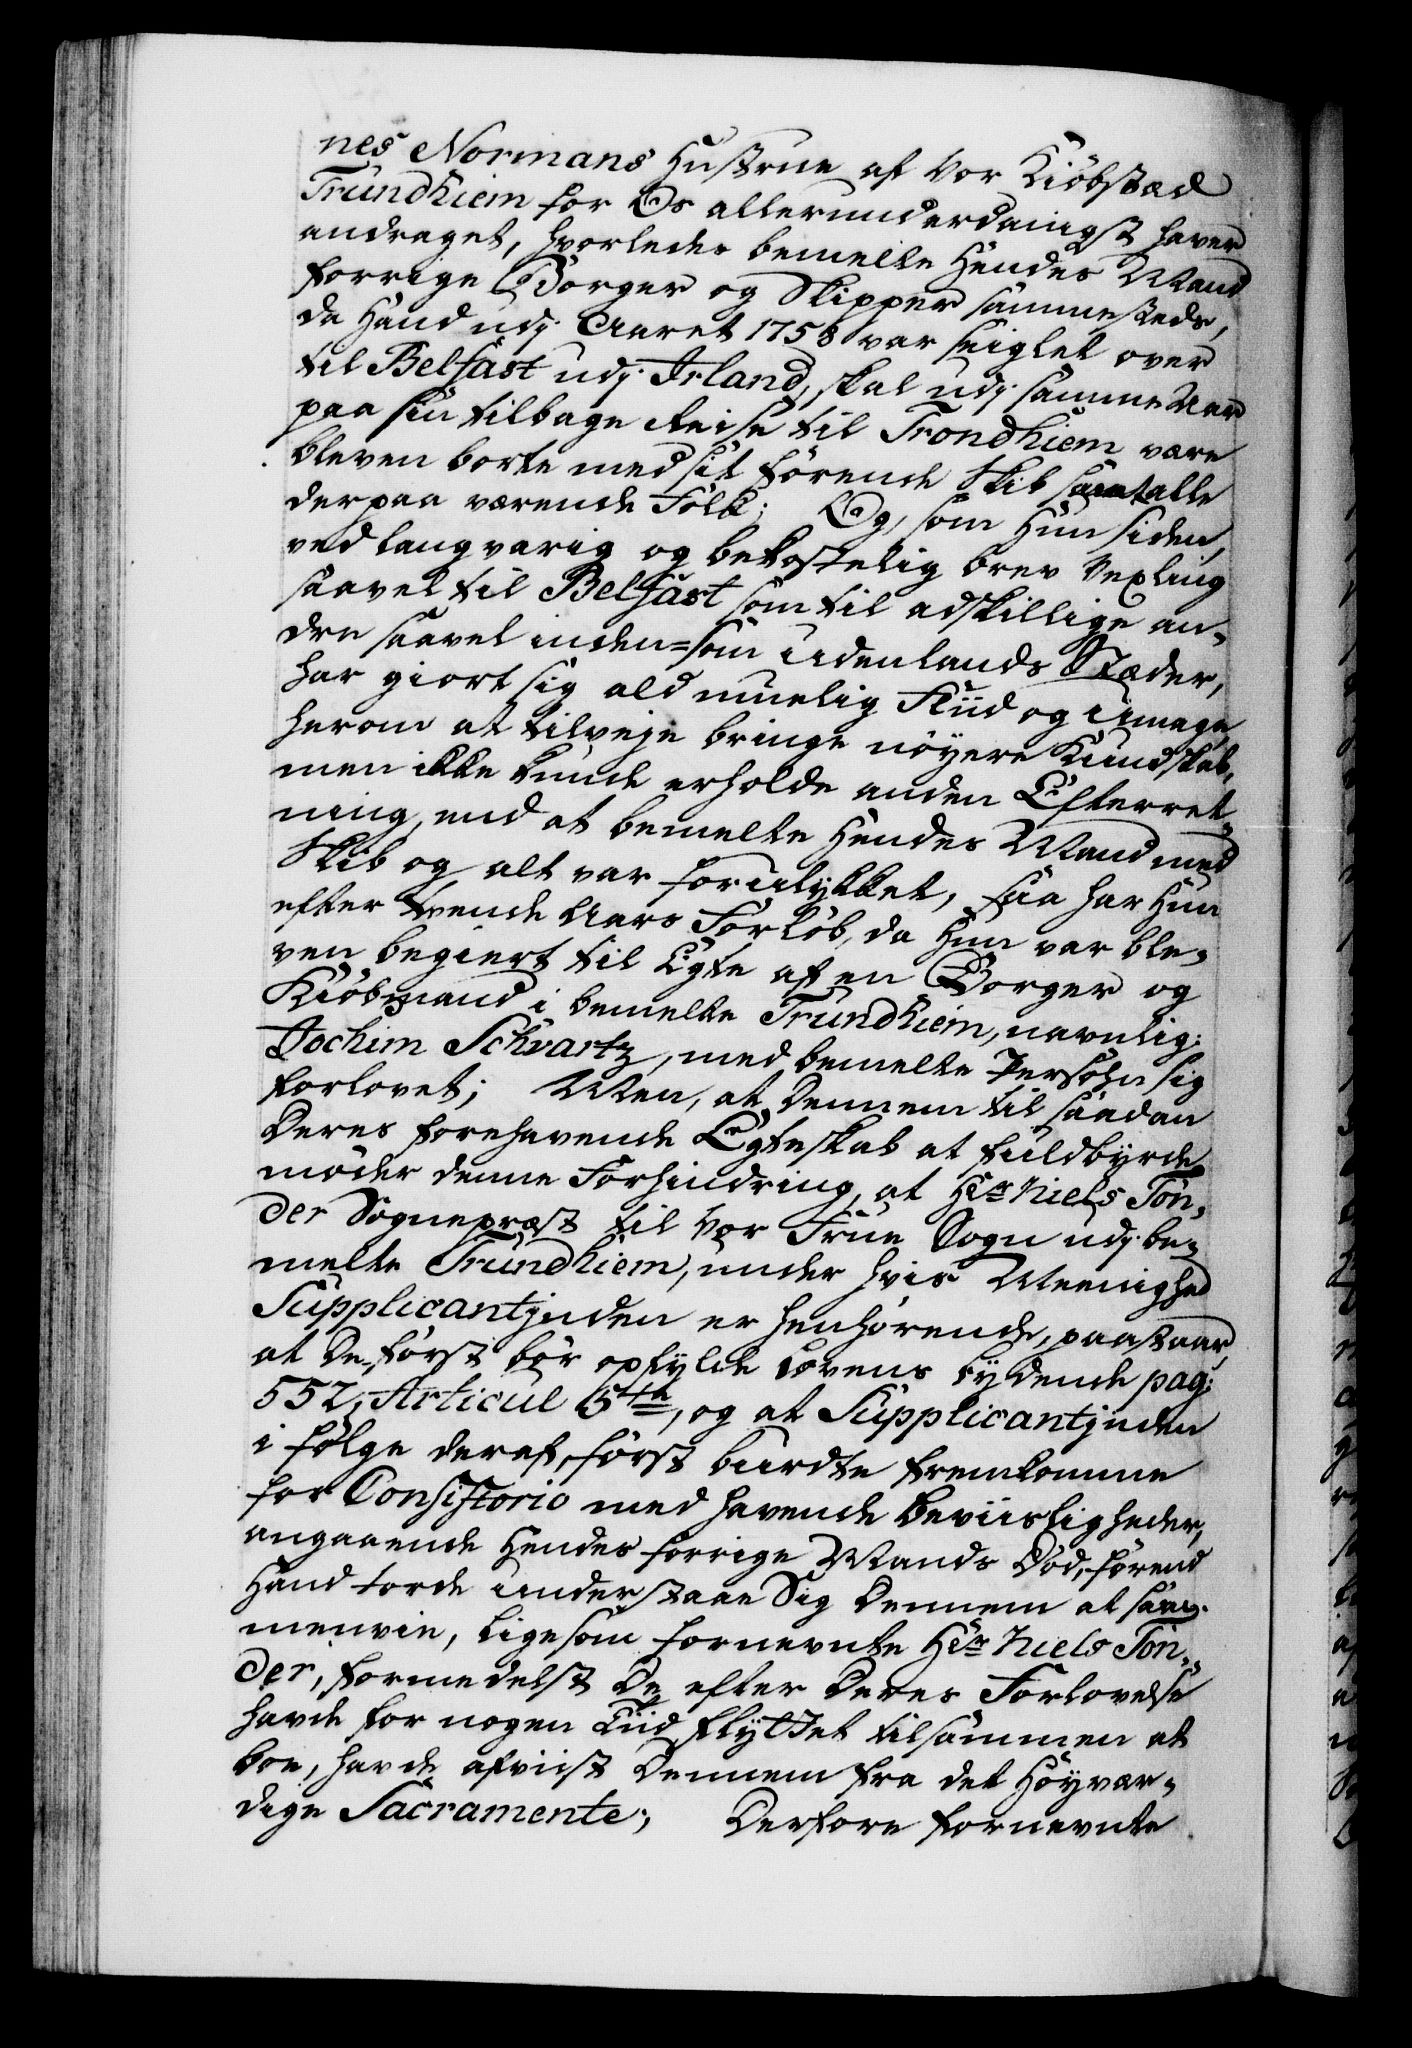 nes Normans Hustrue af vor Kiöbstæd
Trundhiem for Os allerunderdanigst haver
andraget, hvorledes bemelte Hendes Mand
forrige Borger og Skipper sammesteds,
da Hand udj Aaret 1758 var seiglet over
til Belfast udj Irland, skal udj samme Aar
paa sin tilbage Reise til Trondhiem være
bleven borte med sit förende Skib samt alle
derpaa værende Folk; Og, som Hun siden,
ved langvarig og bekostelig brev Vexling
saavel til Belfast som til adskillige an-
dre saavel inden- som udenlands Stæder,
har giort sig ald muelig Fliid og Umage,
herom at tilveje bringe nöyere Kundskab,
men ikke kunde erholde anden Efterret-
ning, end at bemelte Hendes Mand med
Skib og alt var forulykket, saa har Hun
efter tvende Aars Forlöb, da Hun var ble-
ven begiert til Egte af en Borger og
Kiöbmand i bemelte Trundhiem, navnlig:
Jochim Schvartz, med bemelte Persohn sig
forlovet; Men, at Dennem til saadan
Deres forehavende Egteskab at fuldbyrde
möder denne Forhindring, at Hr Niels Tön-
der Sognepræst til Vor Frue Sogn udj be-
melte Trundhiem, under hvis Meenighed
Supplicantjnden er henhörende, paastaar,
at De först bör opfylde Lovens lydende pag:
552, Articul 6te, og at Supplicantjnden
i fölge deraf, först burdte fremkomme
for Consistorio med havende Beviisligheder,
angaaende Hendes forrige Mands Död, förend
Hand torde understaae Sig Dennem at sam-
menvie, ligesom fornevnte Hr Niels Tön-
der, formedelst De efter Deres Forlovelse
havde for nogen Tiid flyttet tilsammen at
boe, havde afviist Dennem fra det Höyvær-
dige Sacramente; Derfore fornevnte